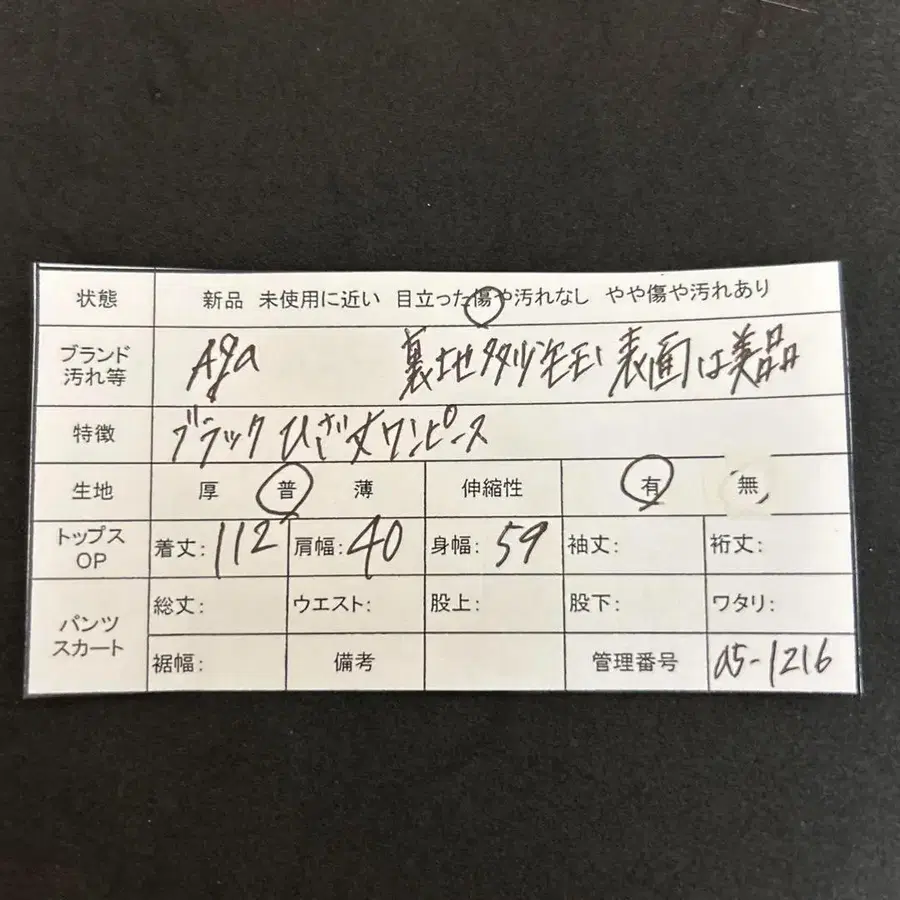 状態 新品 未使用に近い 目立った傷や汚れなし やや傷や汚れあり
ブランド 汚れ等 Aga 裏地 表面は美品
特徴 ブラック ひざ丈ワンピース
生地 厚 普 薄 伸縮性 有 無
トップス OP 着丈: 112 肩幅: 40 身幅: 59 袖丈: 裄丈:
パンツ スカート 総丈: ウエスト: 股上: 股下: ワタリ:
裾幅: 備考 管理番号 a5-1216